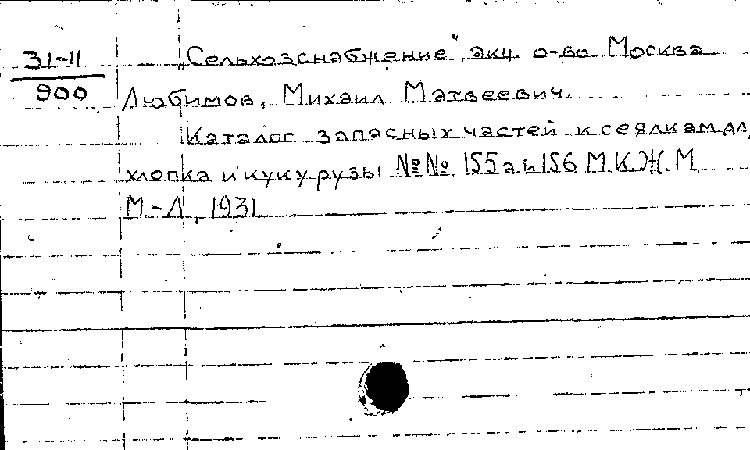 31-11
900
„Сельхозснабжение" акц. о-во Москва
Любимов, Михаил Матвеевич.
Каталог запасных частей к сеялкам дл
хлопка и кукурузы №№ 155а и 156 М.К.Ж.М
М.-Л., 1931